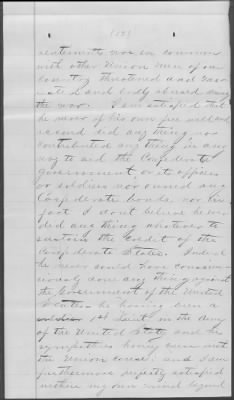 (12)
sentiments nor in common
with other Union men of our
country threatened and
and badly abused during
the war. I am satisfied that
he never of his own free will and
accord did any thing nor
contributed any thing in any
way to aid the Confederate
government, or its officers
or soldiers nor owned any
Confederate bonds, nor in
fact I don't believe he ever
did any thing whatever to
sustain the credit of the
Confederate States. Indeed
he never could have
done any thing against
the Government of the United
States he having been a
1st Lieut in the Army
of the United States and his
sympathies being ever with
the Union cause, and I am
furthermore perfectly satisfied
within my own mind beyond